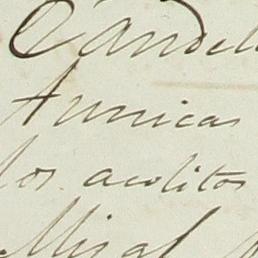 Candel
Tunicas
los acolitos
Misal